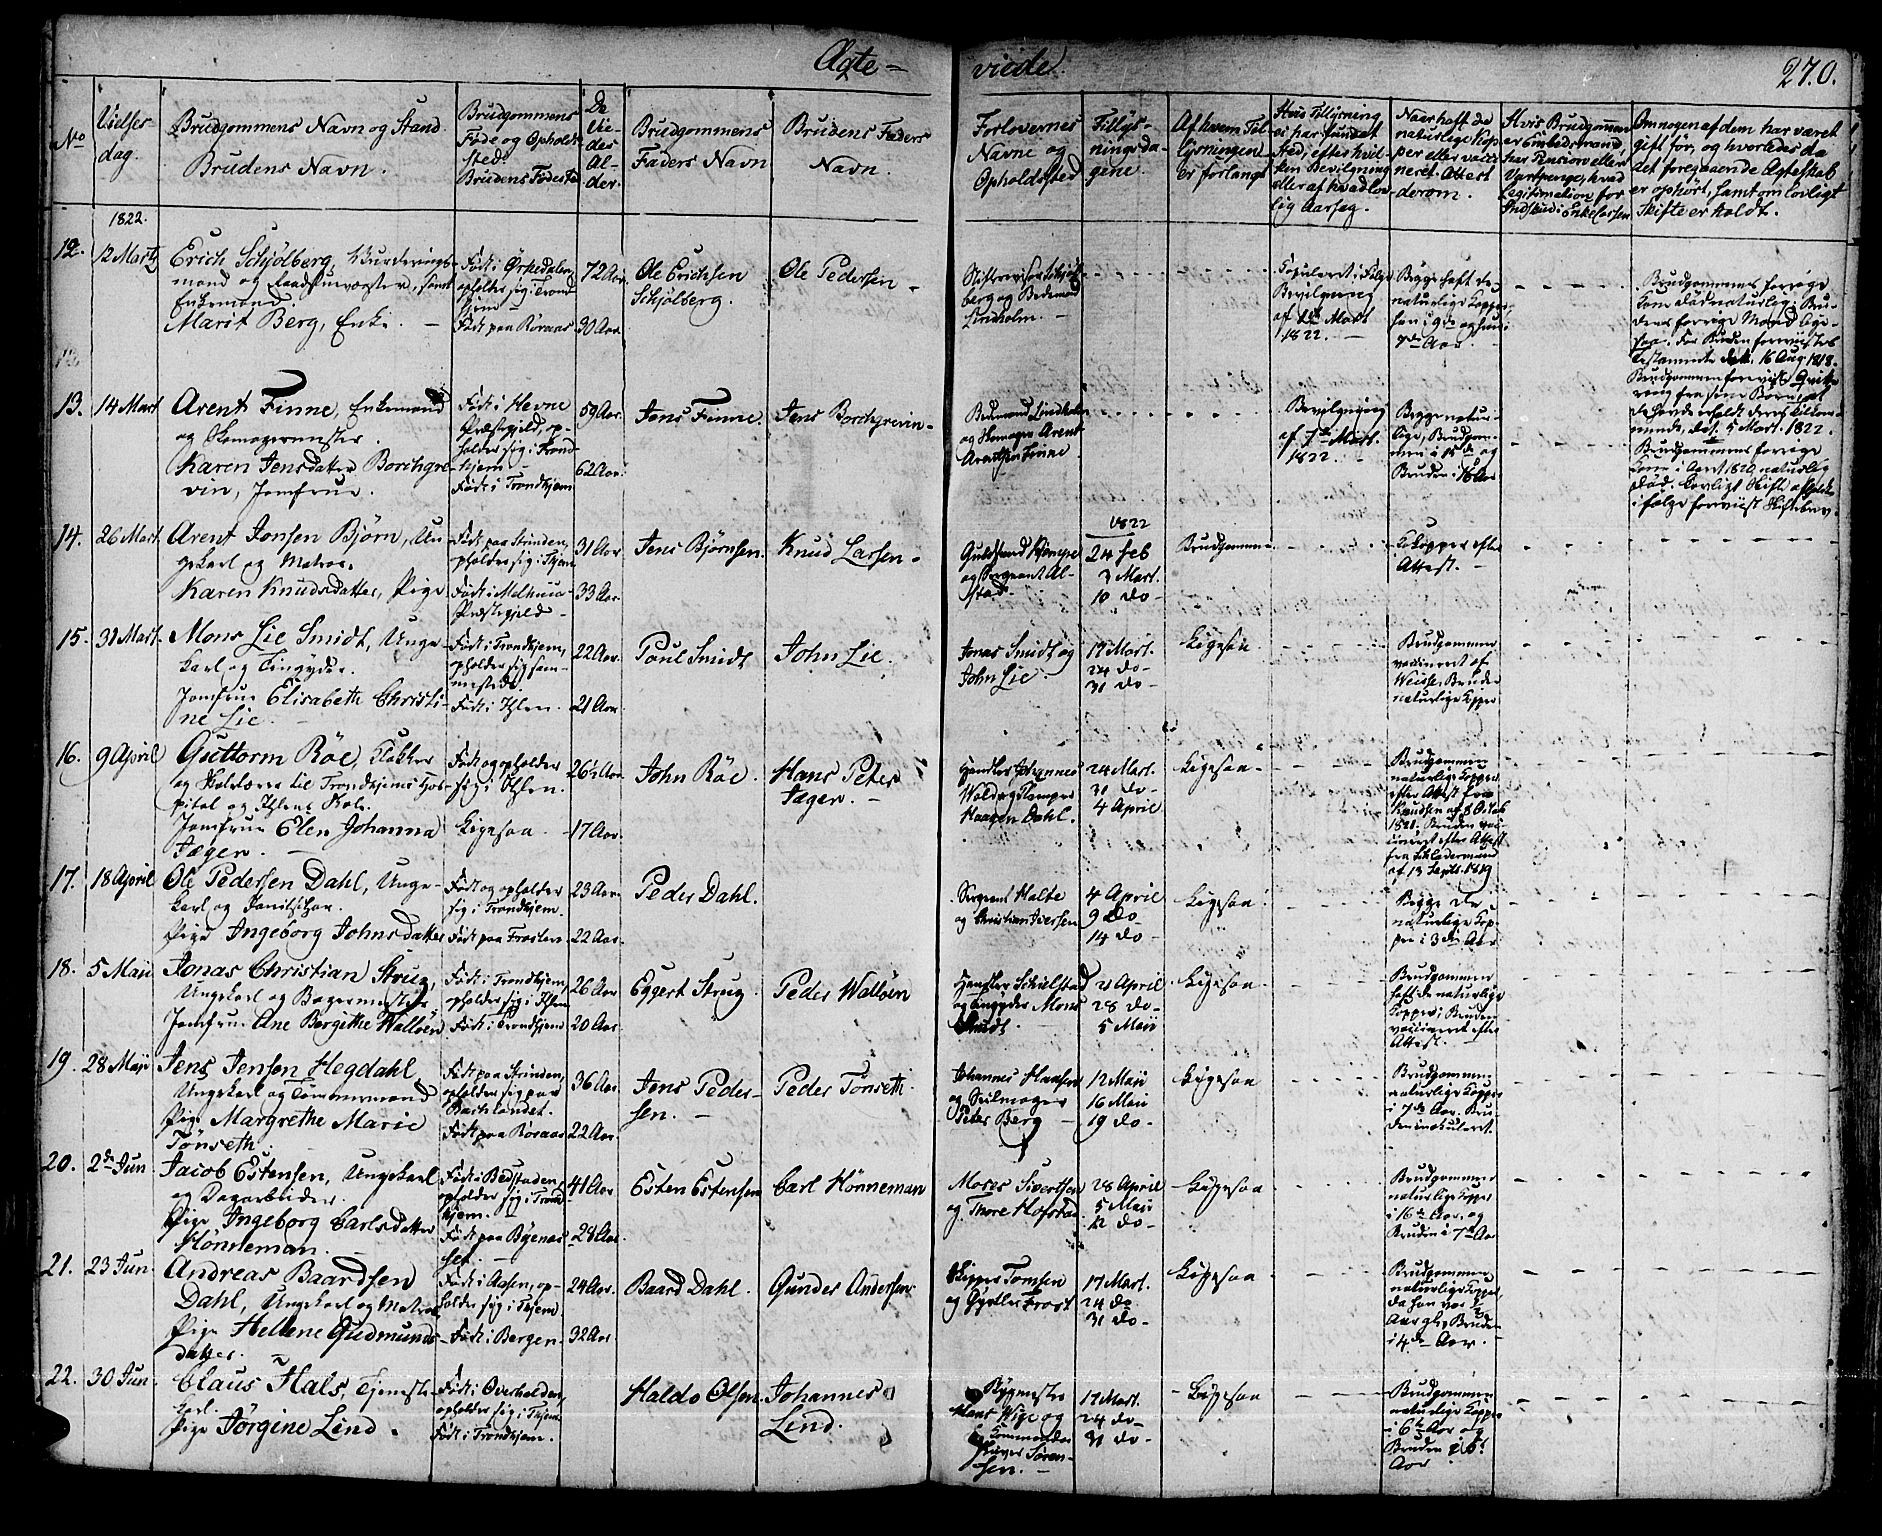 Ægte= viede. 270.
No
Vielses-
dag.
Brudgommens Navn og Stand
Brudens Navn.
Brudgommens
Føde og Opholds
Sted
Brudens Fødested
De
Vie-
des
Al-
der.
Brudgommens
Faders Navn
Brudens Faders
Navn.
Forlovernes
Navne og
Opholdsted
Tillys-
ningsda-
gene.
Af hvem Til
lysningen
er forlangt
Hvis Tillysning
ei har fundet
Sted, efter hvil-
ken Bevilgning
eller af hvad lov
lig Aarsag.
Naar havt de
naturlige Kop
per eller vacci
neret. Attest
derom.
Hvis Brudgommen
er Embedsmand,
har Pension eller
Vartpenge, hvad
Legitimation for
Indskud i Enkecassen
Om nogen af dem har været
gift før, og hvorledes da
det foregaaende Ægteskab
er ophørt, samt om lovligt
Skifte er holdt.
1822.
12. 12 Marts
Erich Schjølberg, Vurderings-
mand og
Enkemand
Marit Berg, Enke. –
Født i Ørkedalen,
opholder sig i Trond
hjem –
Født paa Røraas
72 Aar.
30 Aar.
Ole Erichsen
Schjølberg.
Ole Pedersen –
berg og Bedemand
Lindholm. –
Copuleret i Følge
Bevilgning
af Mart
1822. –
Begge haft de
naturlige Kopper
han i 9de og hun i
7de Aar –
Brudgommens forrige
Kone død naturlig; Bru-
dens forrige Mand lige-
saa. For Bruden forevistes
Testamente dat. 16 Aug. 1818.
Brudgommen foreviist Qvitte
ring fra sine Børn, at
de havde erholdt deres tilkom-
mende, dat. 5 Mart. 1822.
13. 14 Mart
Arent Finne, Enkemand
og Skomagermester.
Karen Jensdatter Borchgre-
vin, Jomfrue.
Født i Hevne
Præstegjeld, op-
holder sig i Trond
hjem –
Født i Trondhjem
59 Aar.
62 Aar.
Jens Finne.
Jens Borchgrevin –
Bedemand Lindholm
og Skomager Arent
Arentsen Finne.
Bevilgning
af 7de Mart.
1822. –
Begge natur-
lige, Brudgom-
men i 15de og
Bruden i 16 Aar
Brudgommens forrige
Kone i Aaret 1820 naturlig
død. Lovligt Skifte afholdt
i følge foreviist Skiftebrev.
14. 26 Mart
Arent Jonsen Bjørn, Un
gekarl og Matros.
Karen Knudsdatter, Pige
Født paa Strinden,
opholder sig i Thjem
Født i Melhuus
Præstegjeld –
31 Aar
33 Aar.
Jens Bjørnsen.
Knud Larsen –
og Sergeant Al-
stad.
1822
24 Feb
3 Mart.
10 do –
Brudgommen
Kokopper efter
Attest. –
15. 31 Mart.
Mons Lie Smidt, Unge
karl og Tingyder.
Jomfrue Elisabeth Christi-
ne Lie. –
Født i Trondhjem,
opholder sig sam-
mesteds.
Født i Ihlen.
22 Aar.
21 Aar.
Paul Smidt
John Lie.
Jonas Smidt og
John Lie.
17 Mart.
24 do –
31 do –
Ligesaa
Brudgommen
vaccineret af
Weisse, Bruden
naturlige Kopper
16. 9 April
Guttorm Röe, Klokker
og Skolelærer til Trondhjems Hos-
pital og Ihlens Skole.
Jomfrue Elen Johanna
Jæger. –
Født og opholder
sig i Ihlen.
Ligesaa –
26½ Aar.
17 Aar.
John Röe.
Hans Peter
Jæger. –
Handler Johannes
Haagen Dahl.
24 Mart.
31 do –
4 April
Ligesaa –
Brudgommen
naturlige Kopper
efter Attest fra
Knudsen af 8 Octob
1821. Bruden vac-
cineret efter Attest
fra
af 13 Septb. 1819
17. 18 April
Ole Pedersen Dahl, Unge-
karl og
Pige Ingeborg Johnsdatter
Født og opholder
sig i Trondhjem.
Født paa Frosten.
23 Aar.
22 Aar.
Peder Dahl.
Sergeant Halte
og Christian Iversen
4 April
9 do
14 do –
Ligesaa
Begge de
naturlige Kop-
per i 3de Aar
18. 5 Maii
Jonas Christian Strug,
Ungekarl og Bagermester
Jomfrue Ane Bergithe Walløen
Født i Trondhjem,
opholder sig i Ihlen
Født i Trondhjem
26 Aar
20 Aar.
Eggert Strug.
Peder Walløen
Handler Schielstad
og Tingyder Mons
Smidt.
21 April
28 do –
5 Maii
Ligesaa.
Brudgommen
haft de naturlige
Kopper, Bruden
vaccineret efter
Attest.
19. 28 Maii
Jens Jensen Hegdahl,
Ungekarl og Tømmermand
Pige Margrethe Marie
Tönseth –
Født paa Strinden,
opholder sig paa
Baclandet.
Født paa Röraas
36 Aar
22 Aar.
Jens Peder-
sen. –
Peder Tönseth
Johannes Hansen
og Seilmager
Peter Berg –
12 Maii
16 Maii
19 do –
Ligesaa
Brudgommen
naturlige Kopper
i 7de Aar. Bru-
den inokuleret.
20. 2de Jun
Jacob Estensen, Ungekarl
og Dagarbeider.
Pige Ingeborg Carlsdatter
Hönneman. –
Født i Bedstaden,
opholder sig i Trond
hjem. –
Født paa Byenæs-
set. –
41 Aar
28 Aar.
Esten Estensen
Carl Hönneman
Moses Sivertsen
og Thore Hofstad
28 April
5 Maii
12 do –
Ligesaa
Brudgommen
naturlige Kopper
i 16de Aar, og
Bruden i 7de Aar
21. 23 Jun.
Andreas Baardsen
Dahl, Ungekarl og Matros
Pige Hellene Gudmunds
datter.
Født i Aasen, op-
holder sig i Thjem
Født i Bergen.
24 Aar.
32 Aar.
Baard Dahl.
Gunder Andersen
Skipper Tomsen
og Gjørtler Frost
17 Mart.
24 do
31 do –
Ligesaa
Brudgommen
naturlige Kopper
da han var ½
Aar gl., Bruden
i 4de Aar.
22. 30 Jun.
Claus Hals, Tjeneste-
karl.
Pige Jörgine Lind.
Født i Overhalden,
opholder sig i Thjem
Født i Trondhjem.
Haldo Olsen
Johannes
Lind.
Bygmester
Hans Wige og
Sören-
sen. –
17 Mart.
24 do –
31 do –
– Ligesaa
Brudgommen
naturlige Kopper
i 6te Aar og
Bruden i 5te
Aar.